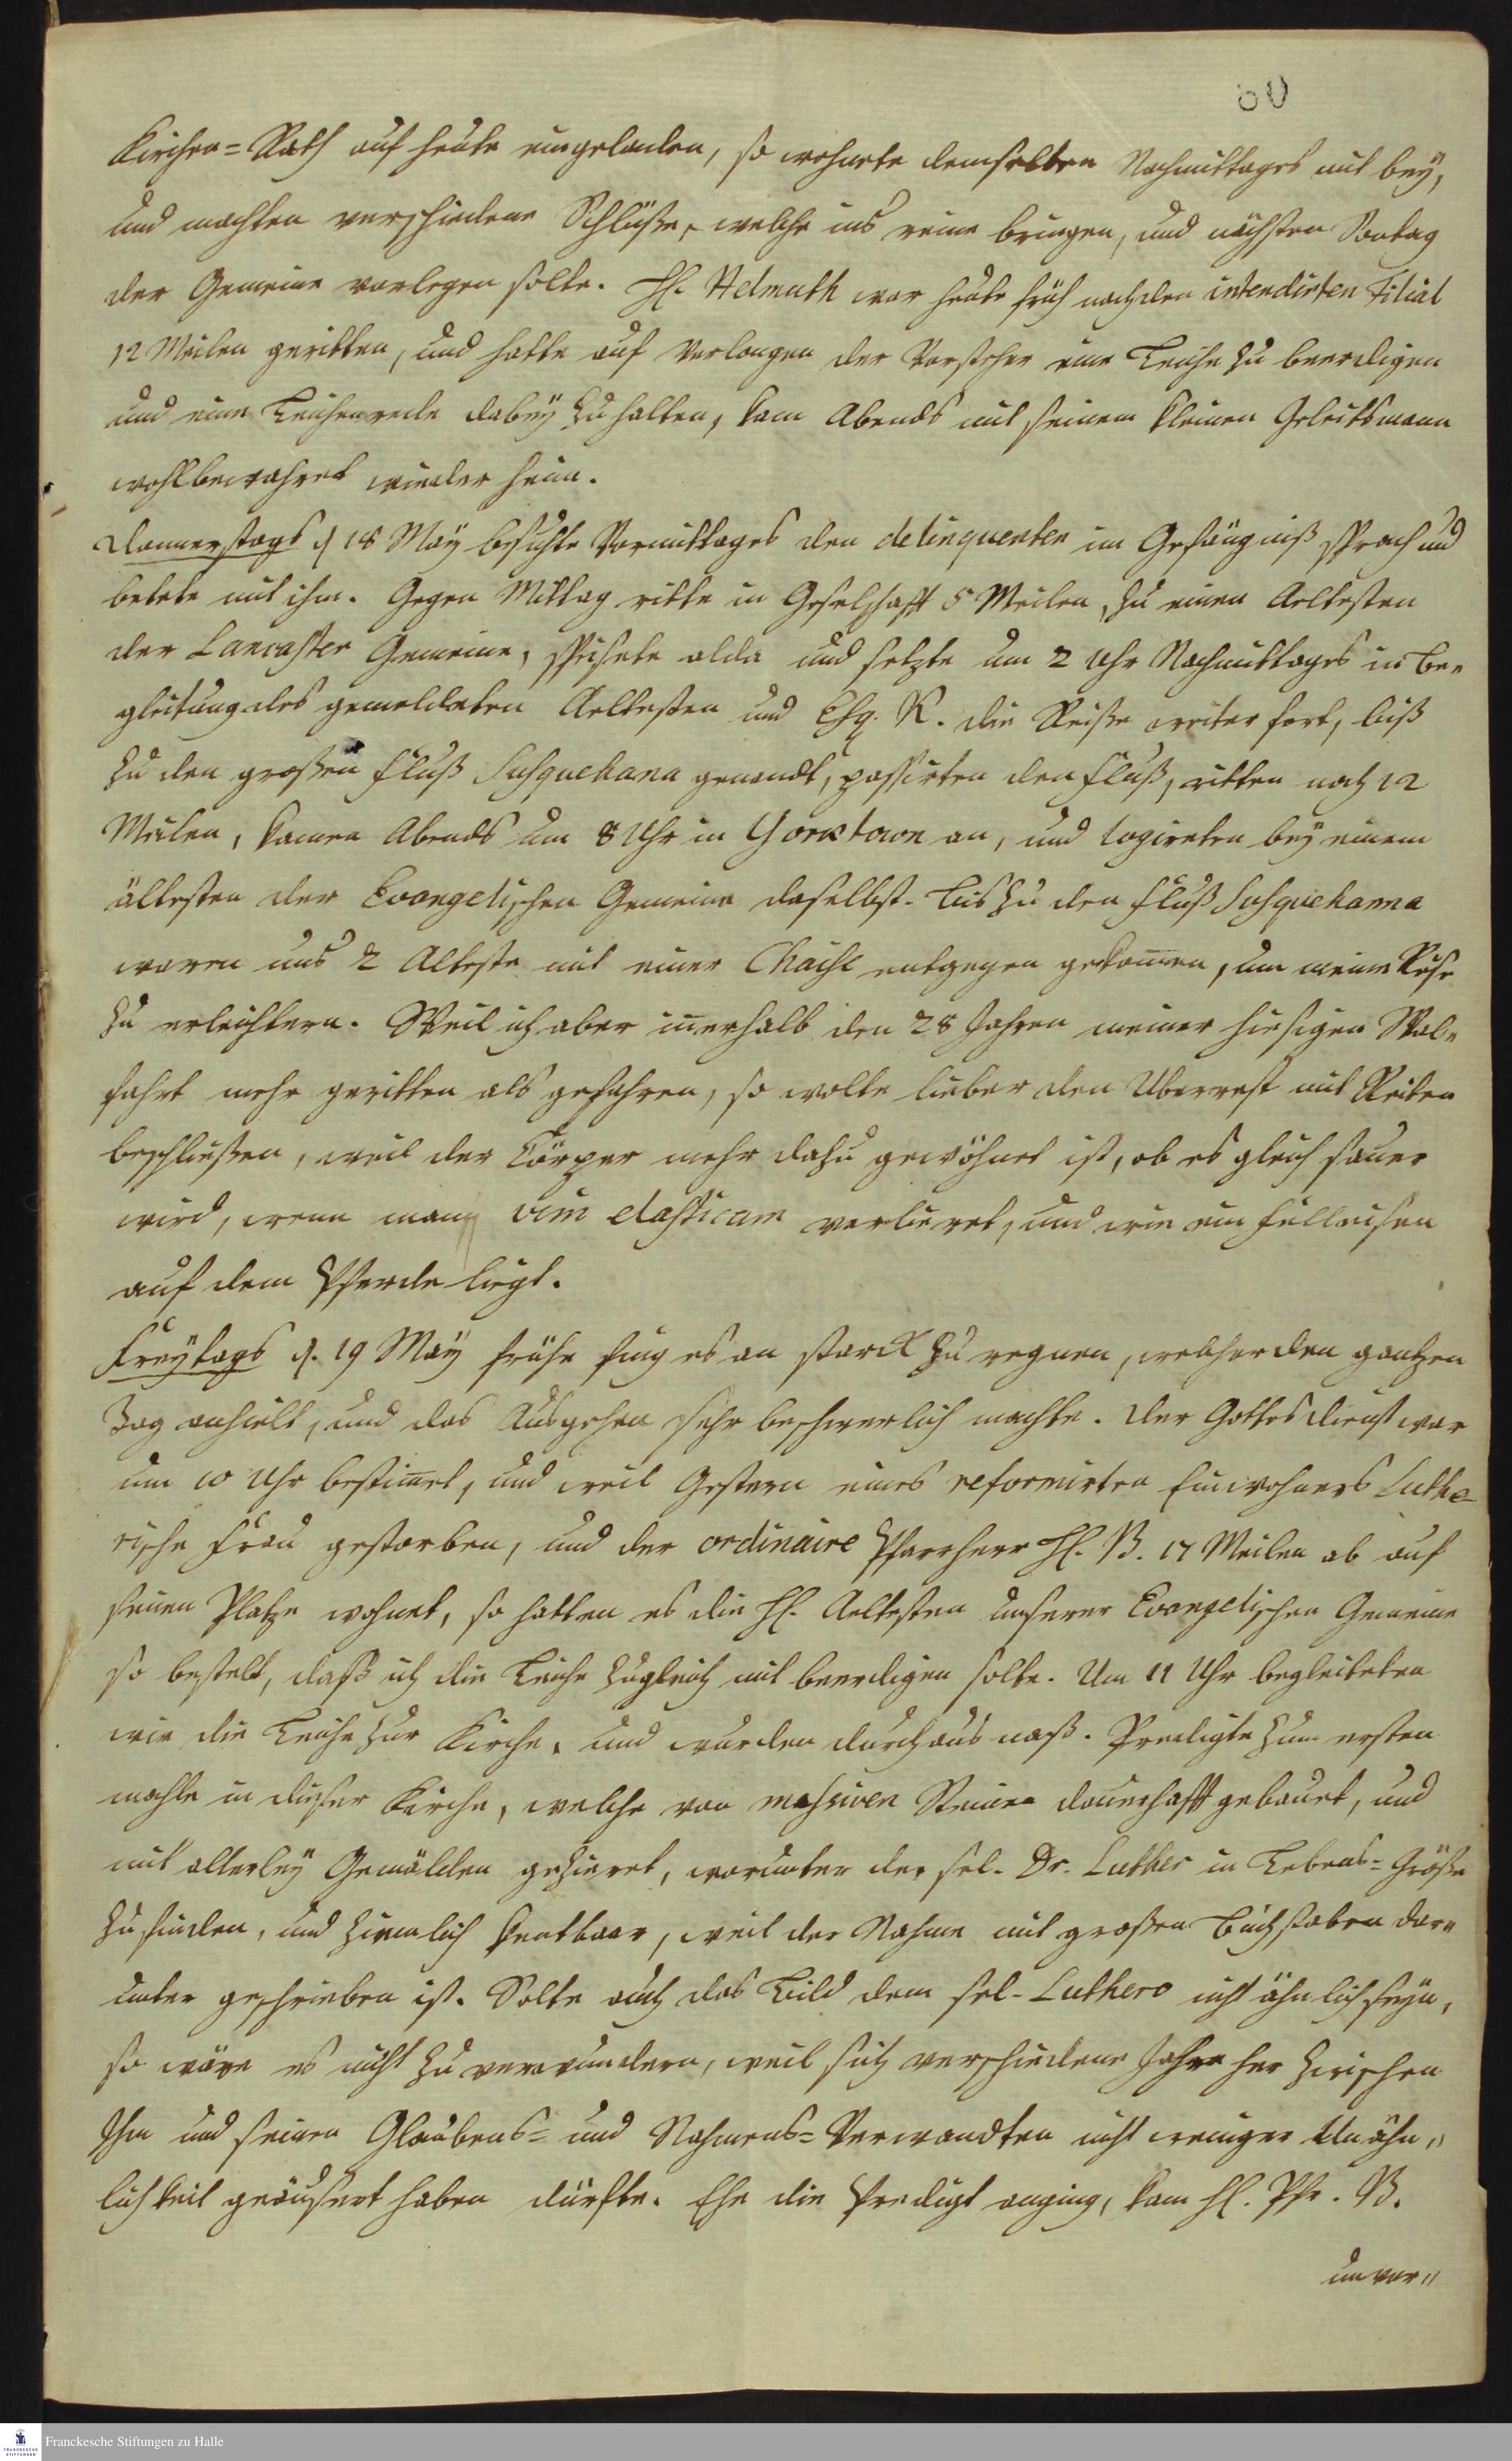 60
Kirchen=Rath auf heute eingeladen, so wohnete demselben Nachmittages mit bey,
und machten verschiedene Schlüße, welche ins reine bringen, und nächsten Sontag
der Gemeine vorlegen solte. H. Helmuth war heute früh nach den intendirten Filial
12 Meilen geritten, und hatte auf Verlangen der Vorsteher eine Leiche zu beerdigen
und eine Leichenrede dabey zu halten, kam Abends mit seinem kleinen Geleitsmann
wohlbewahret wieder heim.
Donnerstags d 18 May besuchte Vormittages den delinquenten im Gefängniß sprach und
betete mit ihm. Gegen Mittag ritte in Geselschafft 5 Meilen, zu einen Aeltesten
der Lancaster Gemeine, speisete alda und setzte um 2 Uhr Nachmittages in Be-
gleitung des gemeldeten Aeltesten und Esq. K. die Reise weiter fort, biß
zu den großen Fluß Susquehana genandt, passirten den Fluß, ritten noch 12
Meilen, kamen Abends um 8 Uhr in Yorktown an, und logireten bey einem
ältesten der Evangelischen Gemeine daselbst. Bis zu den Fluß Susquehanna
waren uns 2 Alteste mit einer Chaise entgegen gekom̅en, um meine Reise
zu erleichtern. Weil ich aber in̅erhalb den 28 Jahren meiner hiesigen Wal-
fahrt mehr geritten als gefahren, so wolte lieber den Uberrest mit Reiten
beschließen, weil der Cörper mehr dazu gewöhnet ist, ob es gleich sauer
wird, wenn man vim elasticam verlieret, und wie ein Felleisen
auf dem Pferde liegt.
Freytags d. 19 May frühe fing es an starck zu regnen, welcher den gantzen
Tag anhielt, und das Ausgehen sehr beschwerlich machte. Der Gottesdienst war
um 10 Uhr bestim̅et, und weil Gestern eines reformirten Einwohners Luthe-
rische Frau gestorben, und der ordinaire Pfarrherr H. B. 17 Meilen ab auf
seinen Platze wohnet, so hatten es die H. Aeltesten unserer Evangelischen Gemeine
so bestelt, daß ich die Leiche zugleich mit beerdigen solte. Um 11 Uhr begleiteten
wir die Leiche zur Kirche, und wurden durchaus naß. Predigte zum ersten
mahle in dieser Kirche, welche von massiven Steinen dauerhafft gebauet, und
mit allerley Gemälden gezieret, worunter der sel. Dr. Luther in Lebens=Größe
zu finden, und ziemlich kentbaar, weil der Nahme mit großen Buchstaben dar-
unter geschrieben ist. Solte auch das Bild dem sel. Luthero nicht ähnlich seyn,
so wäre es nicht zu verwundern, weil sich verschiedene Jahre her zwischen
Ihm und seinen Glaubens= und Nahmens=Verwandten nicht weniger Unähn-
lichkeit geäusert haben dürfte. Ehe die Predigt anging, kam H. Pfr. B.
unver-
Franckesche Stiftungen zu Halle